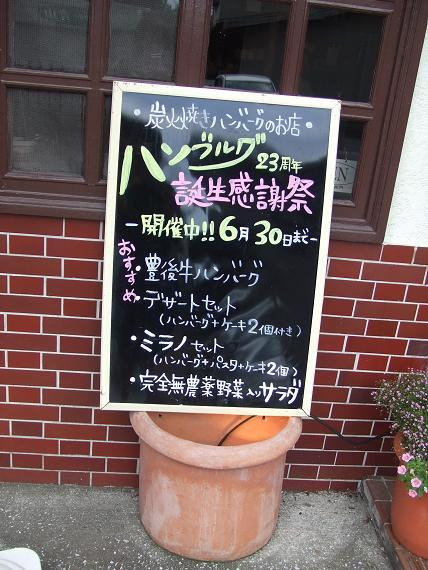 ・炭火焼きハンバーグのお店・
ハンブルグ 23周年
誕生感謝祭
ー開催中!!6月30日までー
おすすめ
・豊後牛ハンバーグ
・デザートセット
（ハンバーグ+ケーキ2個付き）
・ミラノセット
（ハンバーグ+パスタ+ケーキ2個）
・完全無農薬野菜入りサラダ